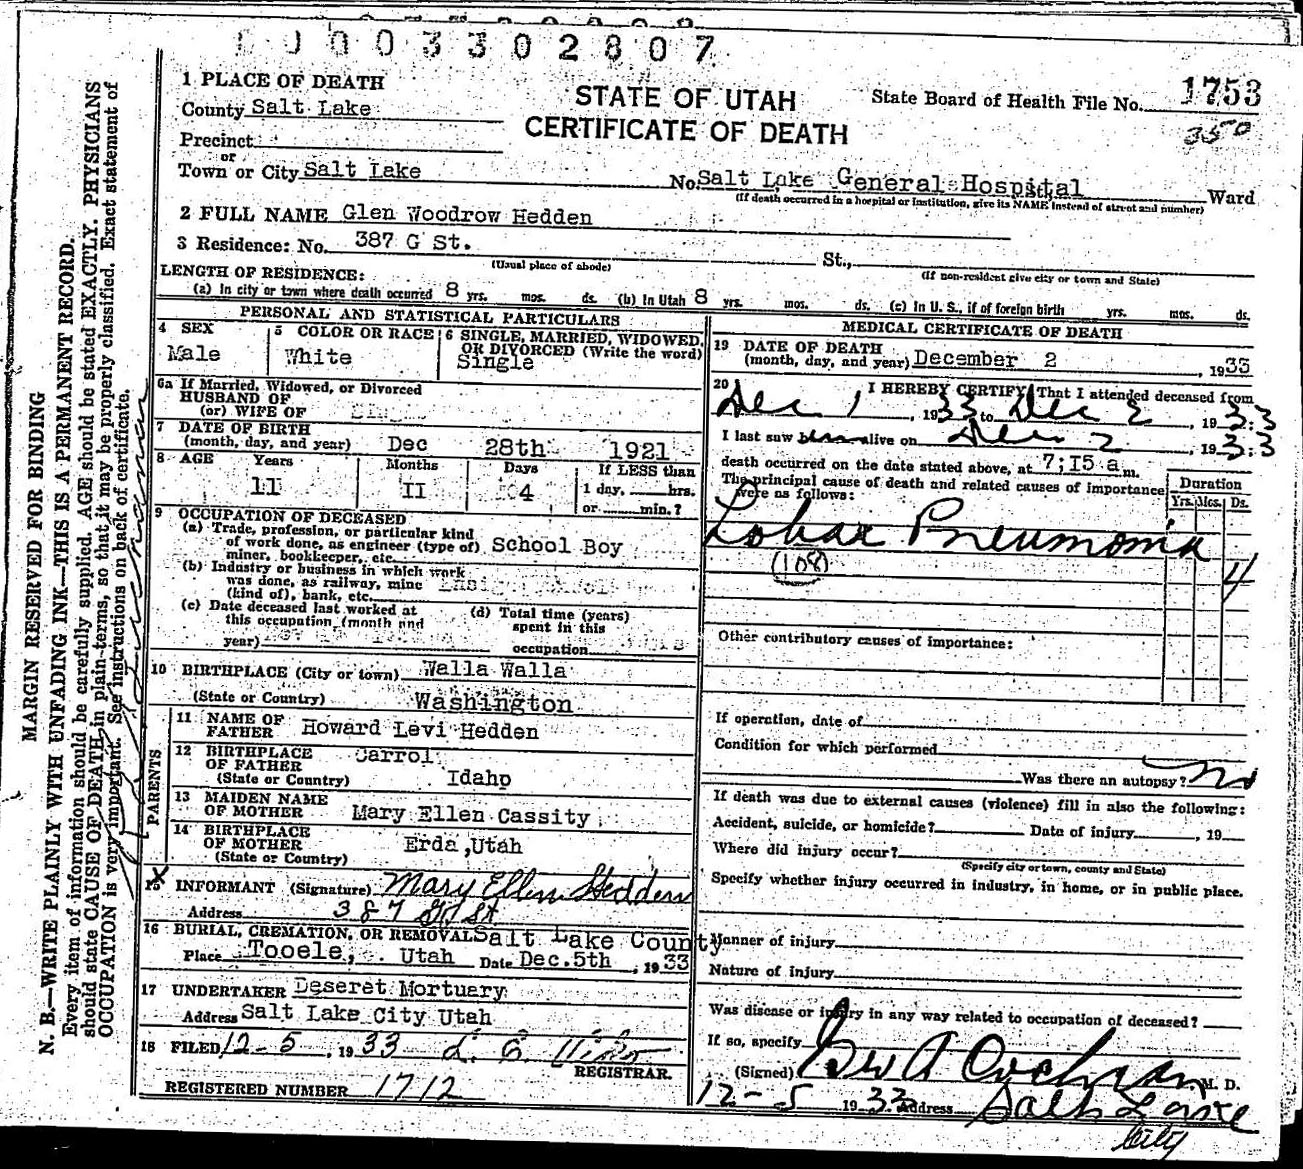 0003302807
1 PLACE OF DEATH
County Salt Lake
STATE OF UTAH
CERTIFICATE OF DEATH
State Board of Health File No. 1753
350
Precinct
or
Town or City Salt Lake
No. Salt Lake General Hospital Ward
(If death occurred in a hospital or institution, give its NAME instead of street and number)
2 FULL NAME Glen Woodrow Hedden
3 Residence: No. 387 G St. St.,
(Usual place of abode) (If non-resident give city or town and State)
LENGTH OF RESIDENCE:
(a) In city or town where death occurred 8 yrs. mos. ds. (b) In Utah 8 yrs. mos. ds. (c) In U. S., if of foreign birth yrs. mos. ds.
PERSONAL AND STATISTICAL PARTICULARS
4 SEX
Male
5 COLOR OR RACE
White
6 SINGLE, MARRIED, WIDOWED,
OR DIVORCED (Write the word)
Single
6a If Married, Widowed, or Divorced
HUSBAND OF
(or) WIFE OF
7 DATE OF BIRTH
(month, day, and year) Dec 28th 1921
8 AGE Years Months Days If LESS than
11 II 4 1 day, hrs.
or min.?
9 OCCUPATION OF DECEASED
(a) Trade, profession, or particular kind
of work done, as engineer (type of) School Boy
miner, bookkeeper, etc.
(b) Industry or business in which work
was done, as railway, mine
(kind of), bank, etc.
(c) Date deceased last worked at
this occupation (month and
year)
(d) Total time (years)
spent in this
occupation
10 BIRTHPLACE (City or town) Walla Walla
(State or Country) Washington
PARENTS
11 NAME OF
FATHER Howard Levi Hedden
12 BIRTHPLACE
OF FATHER Carrol
(State or Country) Idaho
13 MAIDEN NAME
OF MOTHER Mary Ellen Cassity
14 BIRTHPLACE
OF MOTHER Erda, Utah
(State or Country)
15 INFORMANT (Signature) Mary Ellen Hedden
Address 387 G St
16 BURIAL, CREMATION, OR REMOVAL Salt Lake County
Place Tooele, Utah Date Dec. 5th, 1933
17 UNDERTAKER Deseret Mortuary
Address Salt Lake City Utah
18 FILED 12-5, 1933
REGISTRAR.
REGISTERED NUMBER 1712
MEDICAL CERTIFICATE OF DEATH
19 DATE OF DEATH
(month, day, and year) December 2, 1933
20 I HEREBY CERTIFY, That I attended deceased from
Dec 1, 1933 to Dec 2, 1933
I last saw him alive on Dec 2, 1933
death occurred on the date stated above, at 7;15 a m.
The principal cause of death and related causes of importance
were as follows:
Duration
Yrs. Mos. Ds.
Lobar Pneumonia
(108) 4
Other contributory causes of importance:
If operation, date of
Condition for which performed
Was there an autopsy? No
If death was due to external causes (violence) fill in also the following:
Accident, suicide, or homicide? Date of injury, 19
Where did injury occur?
(Specify city or town, county and State)
Specify whether injury occurred in industry, in home, or in public place.
Manner of injury
Nature of injury
Was disease or injury in any way related to occupation of deceased?
If so, specify
(Signed) Geo A Cochran M. D.
12-5 1933 Address Salt Lake
City
MARGIN RESERVED FOR BINDING
N. B.—WRITE PLAINLY WITH UNFADING INK—THIS IS A PERMANENT RECORD.
Every item of information should be carefully supplied. AGE should be stated EXACTLY. PHYSICIANS
should state CAUSE OF DEATH in plain terms, so that it may be properly classified. Exact statement of
OCCUPATION is very important. See instructions on back of certificate.